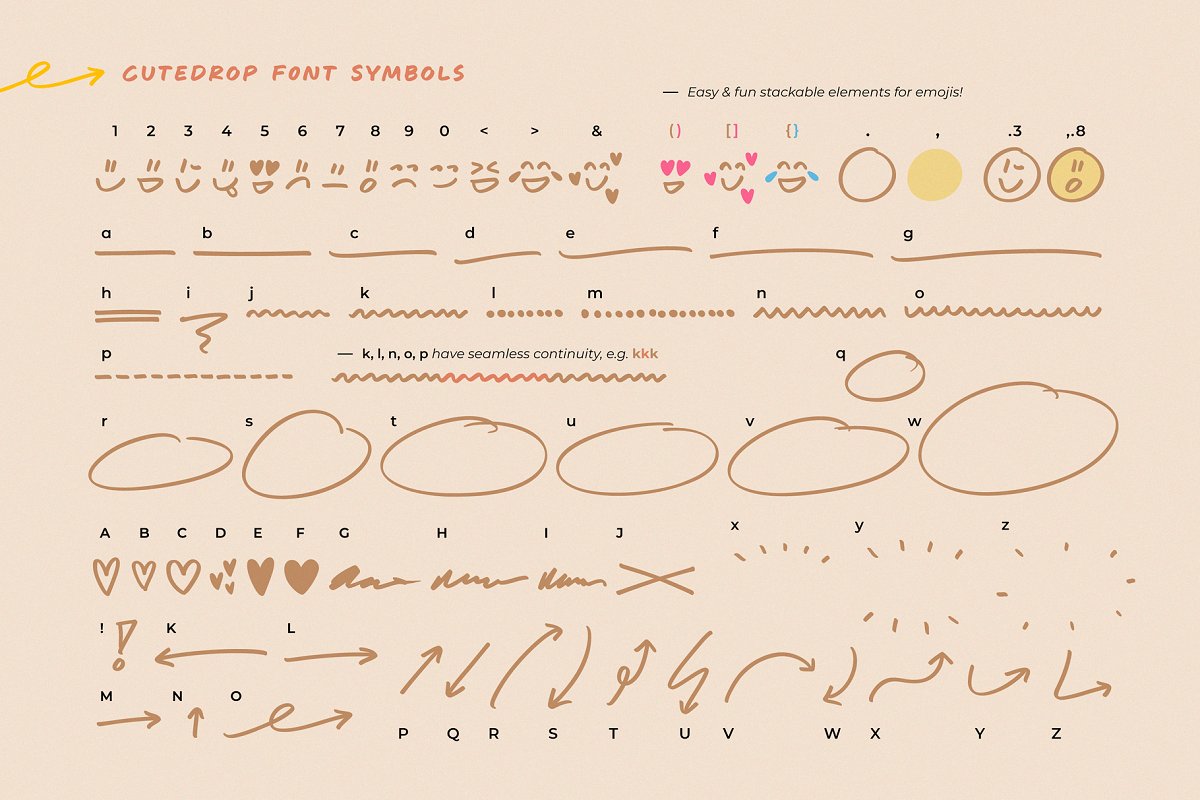 CUTEDROP FONT SYMBOLS
— Easy & fun stackable elements for emojis!
1 2 3 4 5 6 7 8 9 0 < > & () [] {} . , .3 ,.8
a b c d e f g
h i j k l m n o
p — k, l, n, o, p have seamless continuity, e.g. kkk q
r s t u v w
A B C D E F G H I J x y z
! K L
M N O
P Q R S T U V W X Y Z